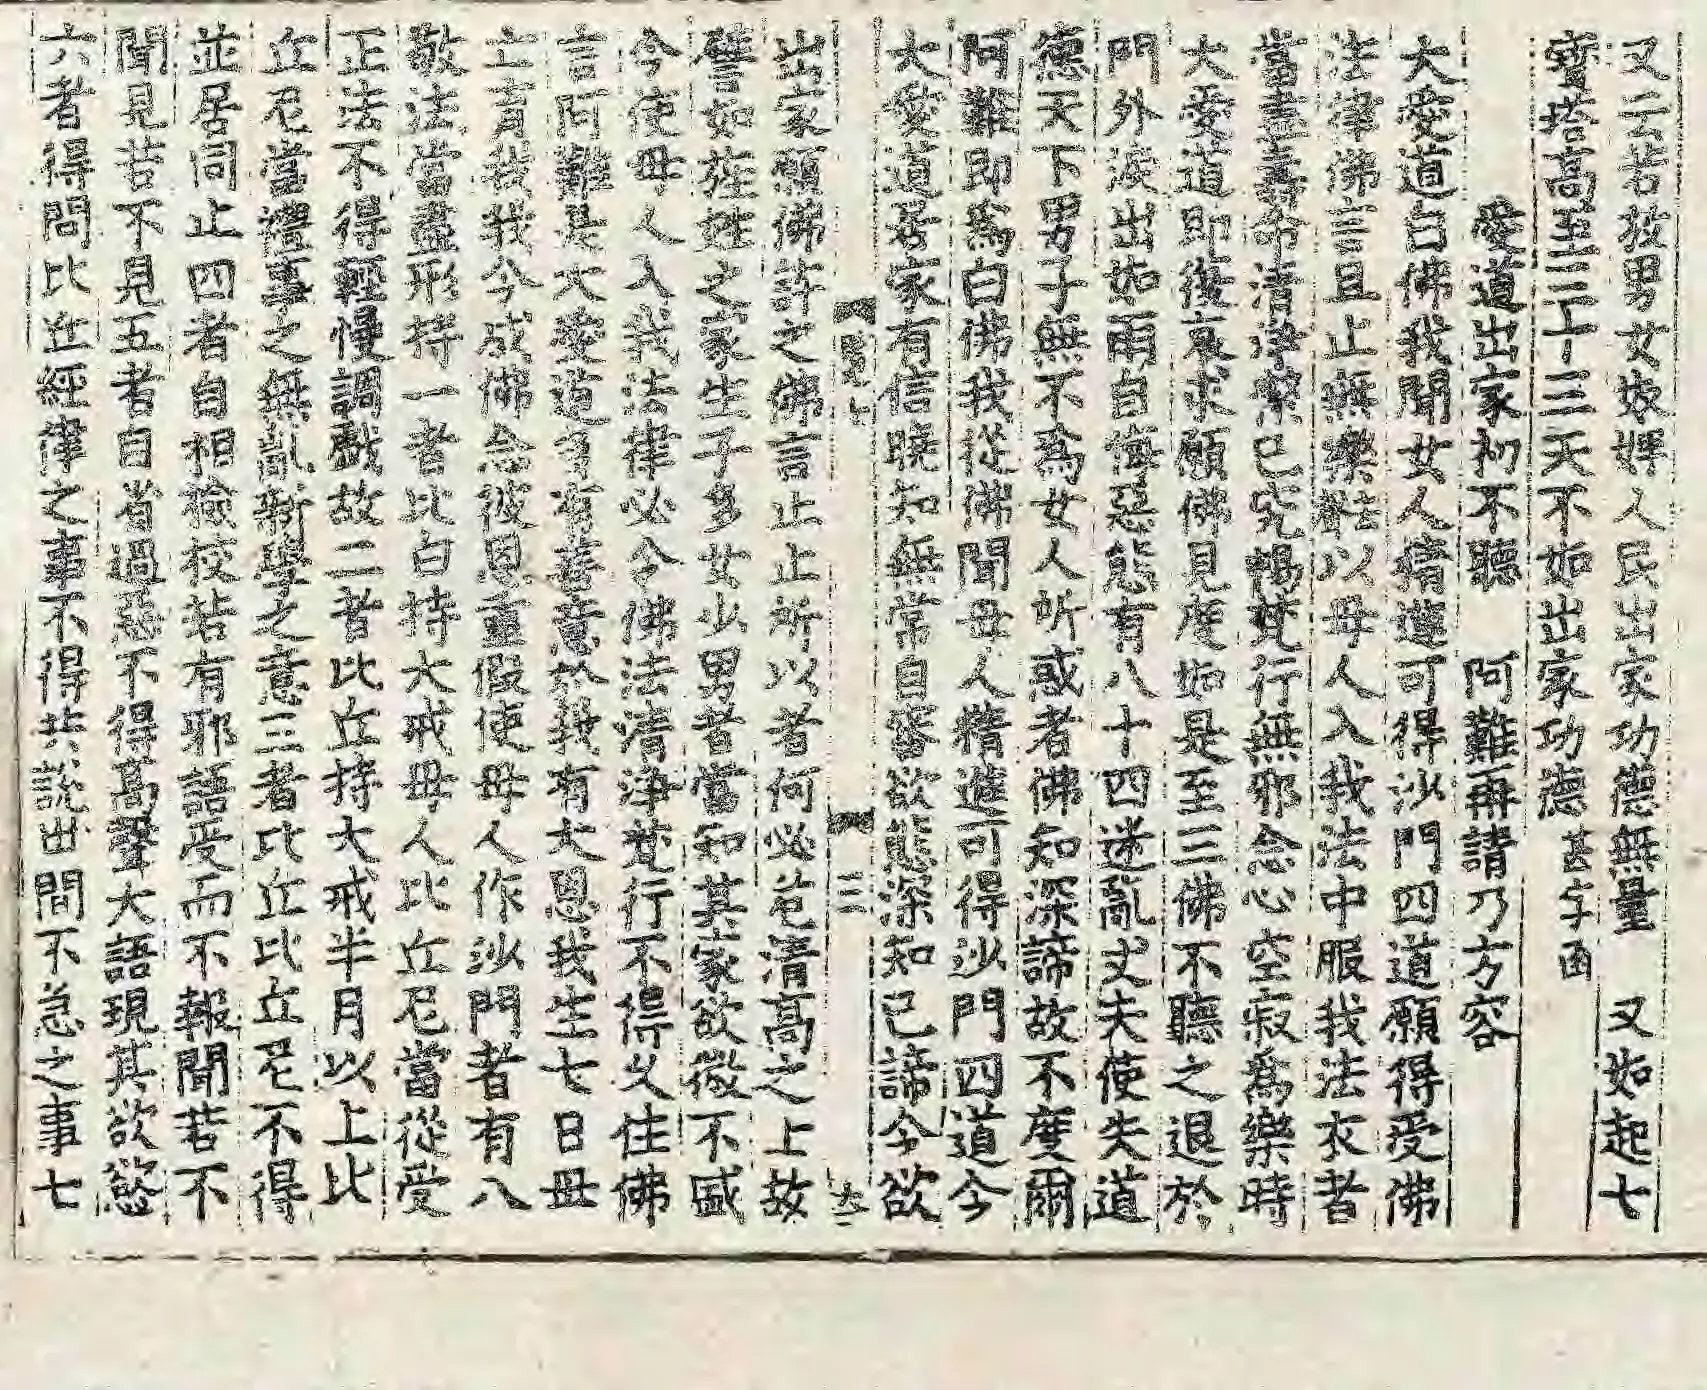 又云若放男女奴婢人民出家功德無量　又如起七
寶塔高至三十三天不如出家功德甚字函
愛道出家初不聽　阿難再請乃方容
大愛道白佛我聞女人精進可得沙門四道願得受佛
法律佛言且止無樂以母人入我法中服我法衣者
當盡壽命清淨潔已究暢梵行無邪念心空寂為樂時
大愛道即復哀求願佛見度如是至三佛不聽之退於
門外淚出如雨自悔惡態有八十四迷亂丈夫使失道
德天下男子無不為女人所惑者佛知深諦故不度爾
阿難即為白佛我從佛聞母人精進可得沙門四道今
大愛道居家有信曉知無常自審欲態深知已諦今欲
三
出家願佛許之佛言止止所以者何必危清高之上故
譬如族姓之家生子多女少男者當知其家欲微不盛
今使母人入我法律必令佛法清淨梵行不得久住佛
言阿難是大愛道多有善意於我有大恩我生七日母
亡育我我今成佛念彼恩重假使母人作沙門者有八
敬法當盡形持一者比白持大戒母人比丘尼當從受
正法不得輕慢調戲故二者比丘持大戒半月以上比
丘尼當禮事之無亂新學之意三者比丘比丘尼不得
並居同止四者自相檢校若有邪語受而不報聞若不
聞見若不見五者自省過惡不得高聲大語現其欲態
六者得問比丘經律之事不得共說世間不急之事七